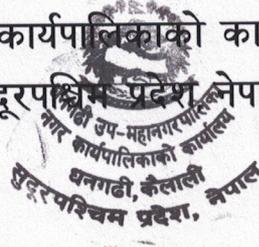 कार्यपालिकाको का
दूरपश्चिम प्रदेश नेप
धनगढी उप-महानगरपालिका
नगर कार्यपालिकाको कार्यालय
धनगढी, कैलाली
सुदूरपश्चिम प्रदेश, नेपाल